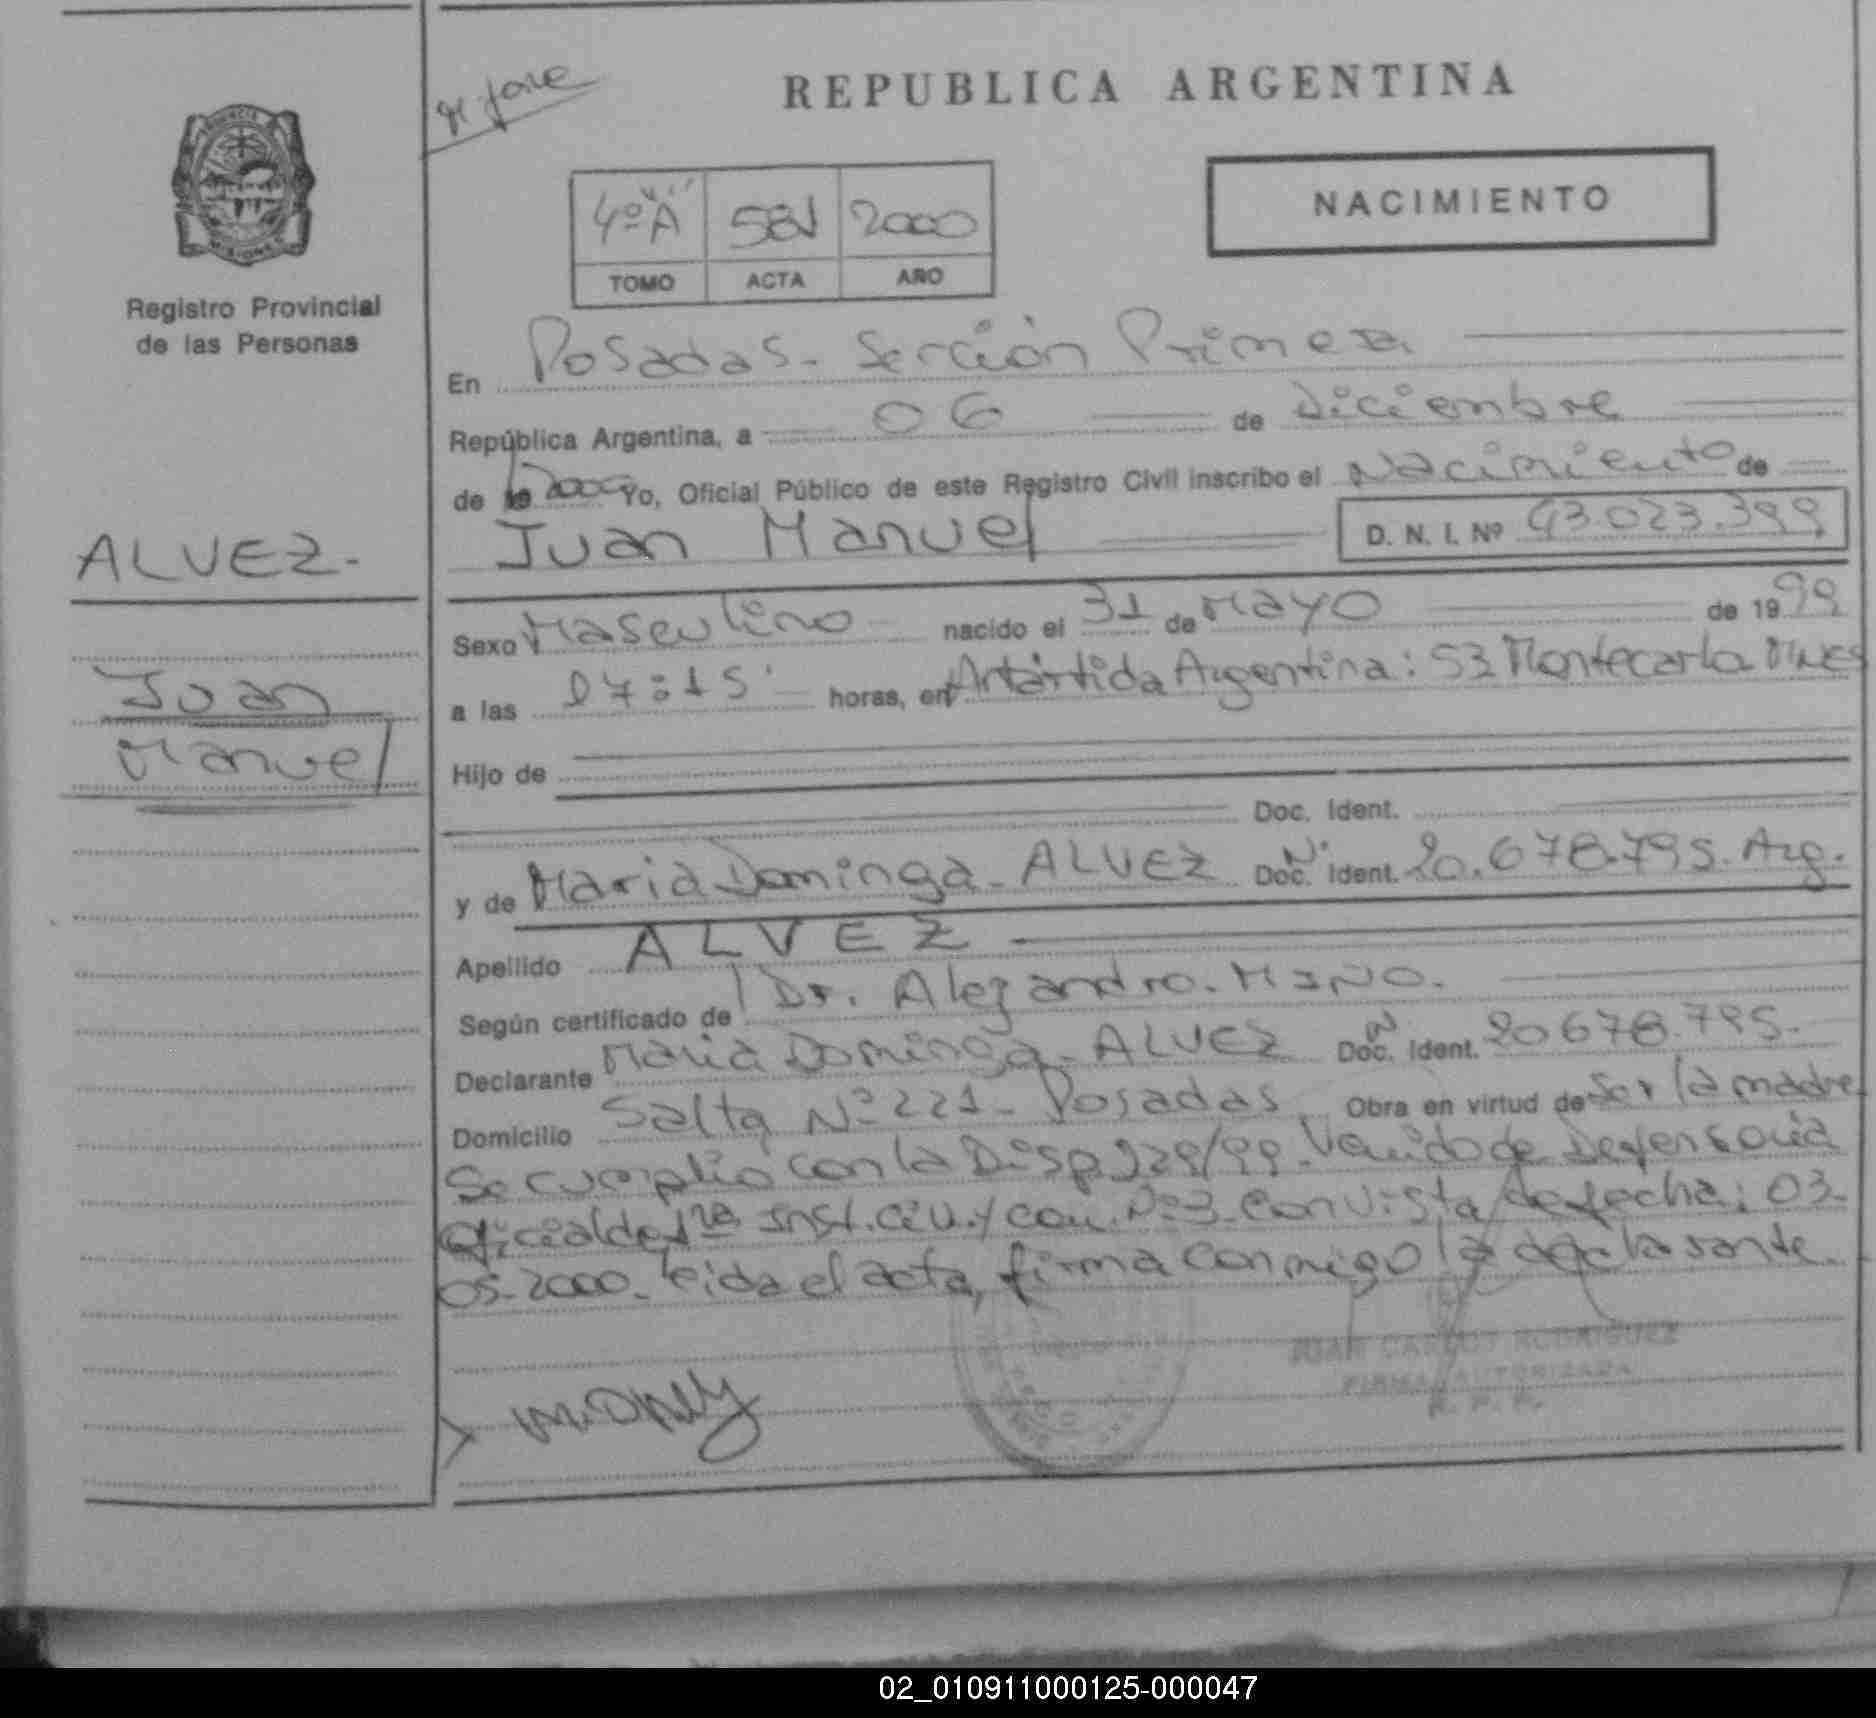 REPUBLICA ARGENTINA
NACIMIENTO
4º "A" 581 2000
TOMO ACTA AÑO
Registro Provincial
de las Personas
En Posadas - Sección Primera
República Argentina, a 06 de Diciembre
de 2000 Yo, Oficial Público de este Registro Civil inscribo el Nacimiento de
Juan Manuel D. N. I. Nº 43.023.399
ALVEZ-
Juan
Manuel
Sexo Masculino nacido el 31 de Mayo de 1999
a las 17:15 horas, en Antártida Argentina: 53 Montecarlo MNES
Hijo de
Doc. Ident.
y de Maria Dominga - ALVEZ Doc. Ident. Nº 20.678.795. Arg.
Apellido ALVEZ
Según certificado de Dr. Alejandro. MINO.
Declarante Maria Dominga - ALVEZ Doc. Ident. 20678.795.
Domicilio Salta Nº 221 - Posadas Obra en virtud de Ser la madre
Se cumplio con la Disp 229/99. Venido de Defensoria
Oficial de 1ra Inst. Civ. y Com. Nº 3 - con vista de fecha: 03-
05-2000. leida el acta, firma conmigo la declarante.
JUAN CARLOS RODRIGUEZ
FIRMA AUTORIZADA
R. P. P.
02_010911000125-000047